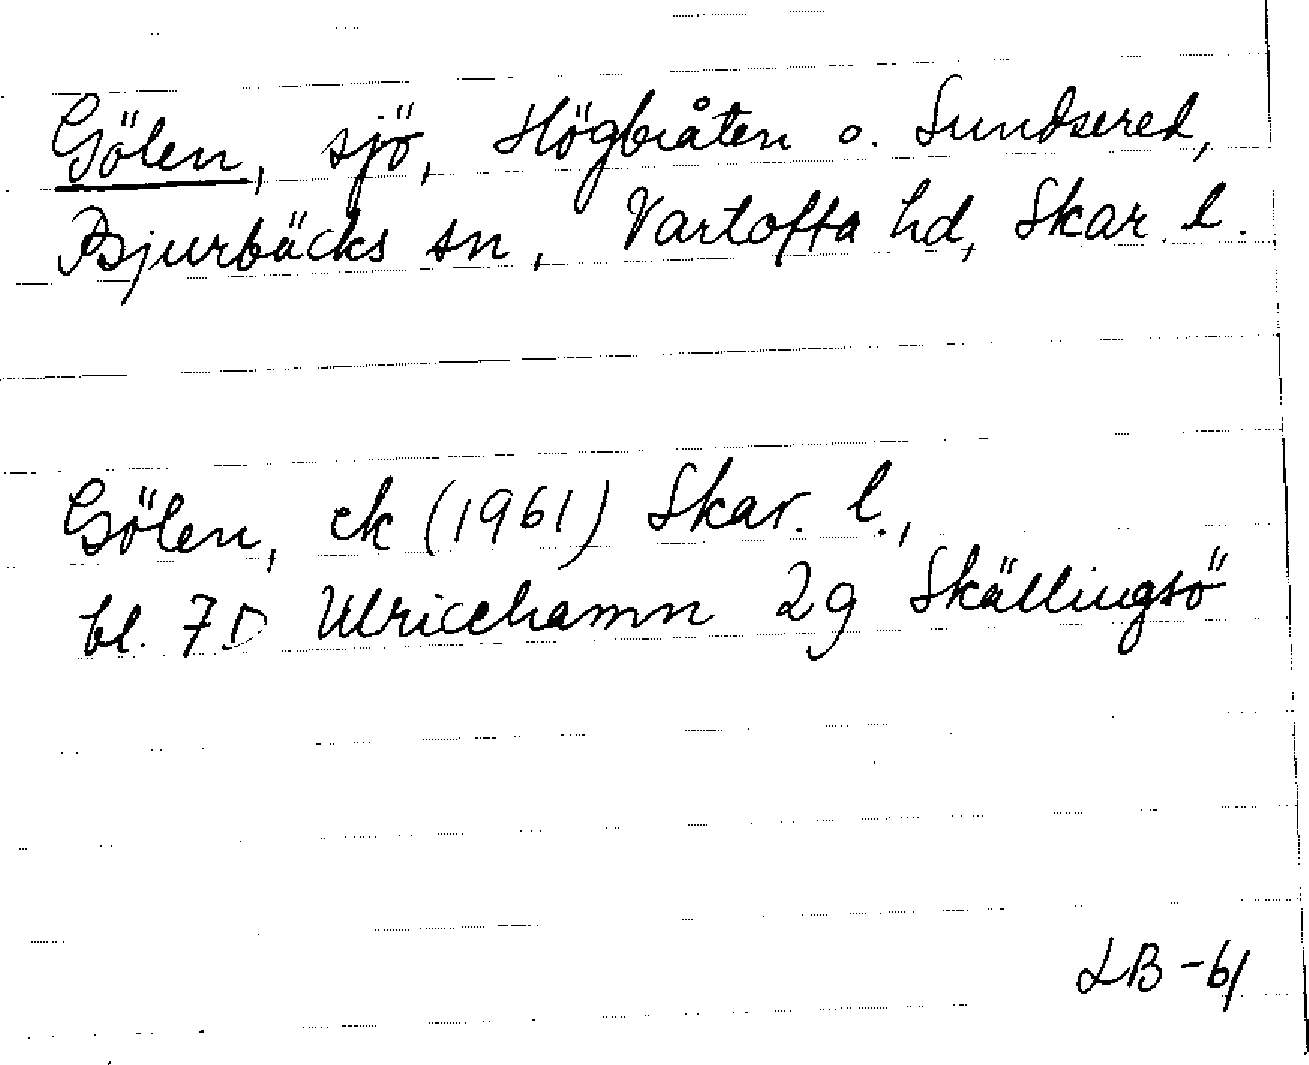 Gölen, sjö, Högbråten o. Sundsered,
Bjurbäcks sn, Vartofta hd, Skar. l.
Gölen, ek (1961) Skar. l.,
bl. 7D Ulricehamn 2g Skällingsö
LB-61